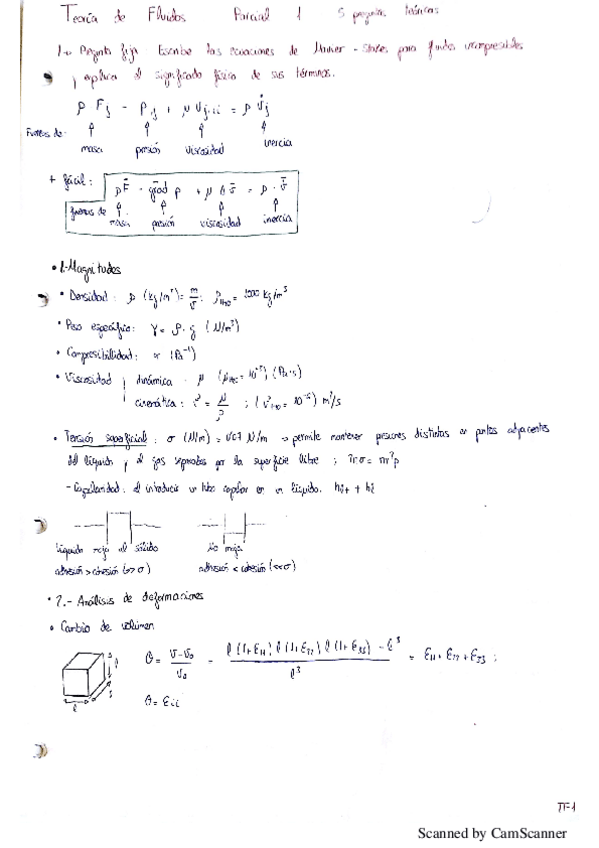 Teoría de Fluidos Parcial 1 5 preguntas teóricas
1.- Pregunta fija: Escribe las ecuaciones de Navier-Stokes para fluidos incompresibles
y explica el significado físico de sus términos.
ρ Fj - P,j + μ Vj,ii = ρ V̇j
Fuerzas de: masa presión viscosidad inercia
+ fácil: ρF̄ - grad p + μ Δ v̄ = ρ · v̄
fuerzas de masa presión viscosidad inercia
• 1.-Magnitudes
• Densidad: ρ (kg/m³) = m/v; ρH2O = 1000 kg/m³
• Peso específico: γ = ρ · g (N/m³)
• Compresibilidad: α (Pa⁻¹)
• Viscosidad dinámica: μ (μH2O = 10⁻³) (Pa·s)
cinemática: = μ/ρ ; ( H2O = 10⁻⁶) m²/s
• Tensión superficial: σ (N/m) N/m → permite mantener presiones distintas en puntos adyacentes
del líquido y el gas separados por la superficie libre;
- Capilaridad: al introducir un tubo capilar en un líquido.
líquido moja al sólido no moja
adhesión > cohesión (>> σ) adhesión < cohesión (<< σ)
• 2.- Análisis de deformaciones
• Cambio de volumen
θ = (V-V₀)/V₀ = (l (1+ε₁₁) l (1+ε₂₂) l (1+ε₃₃) - l³)/l³ = ε₁₁ + ε₂₂ + ε₃₃ ;
θ = εii
l
l
TF-1
Scanned by CamScanner